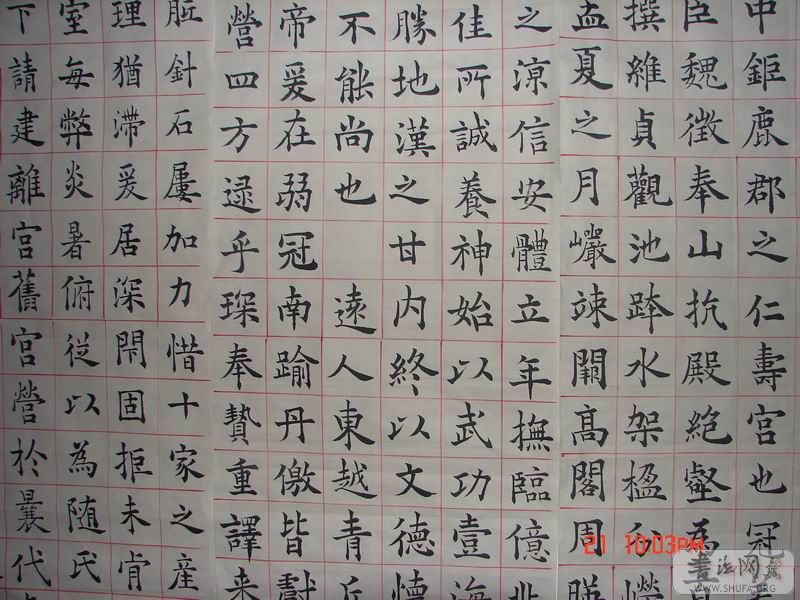 中鉅鹿郡之仁壽宮也冠
臣魏徵奉山抗殿絕壑為
撰維貞觀池跨水架楹分嶸
孟夏之月巗竦闕高閣周
之涼信安體立年撫臨億兆
佳所誠養神始以武功壹海
勝地漢之甘內終以文德懷
不能尚也 遠人東越青丘
帝爰在弱冠南踰丹徼皆獻
營四方逮乎琛奉贄重譯来
肱針石屢加力惜十家之産
理猶滯爰居深閇固拒未肯
室每弊炎暑俯從以為随氏
下請建離宮舊宮營於曩代
21 10:03PM
書法网
WWW.SHUFA.ORG